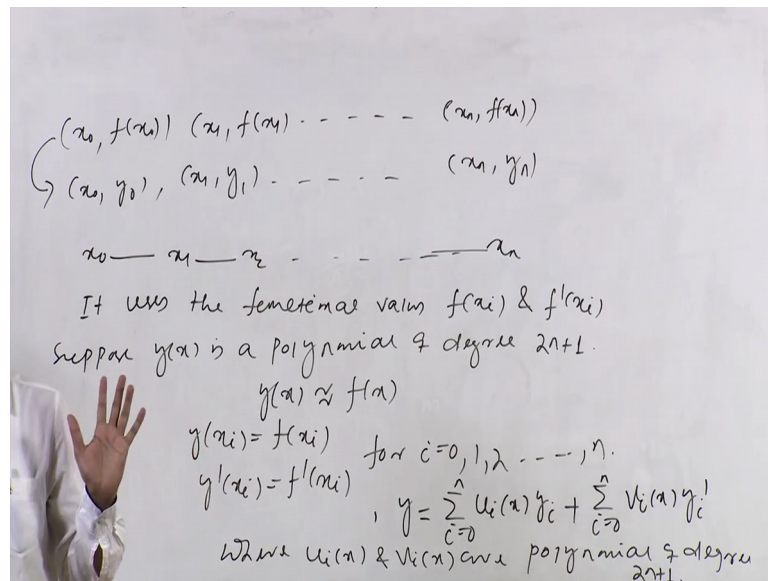 (x₀, f(x₀)) (x₁, f(x₁) - - - - - - (xₙ, f(xₙ))
(x₀, y₀), (x₁, y₁). - - - - - (xₙ, yₙ)
x₀ — x₁ — x₂ - - - - - — xₙ
It uses the functional values f(xᵢ) & f'(xᵢ)
Suppose y(x) is a polynomial of degree 2n+1.
y(x) ≈ f(x)
y(xᵢ) = f(xᵢ)
y'(xᵢ) = f'(xᵢ) for i=0,1,2 - - - -, n.
, y = ∑ᵢ₌₀ⁿ uᵢ(x) yᵢ + ∑ᵢ₌₀ⁿ vᵢ(x) yᵢ'
Where uᵢ(x) & vᵢ(x) are polynomial of degree
2n+1.